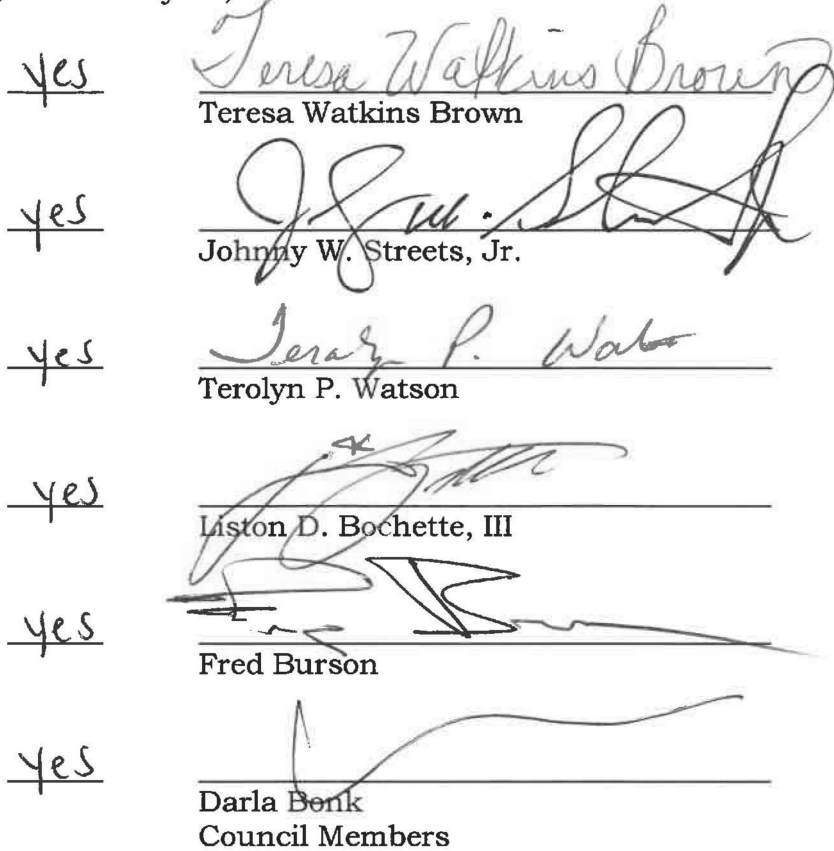 yes Teresa Watkins Brown
Teresa Watkins Brown
yes
Johnny W. Streets, Jr.
yes Terolyn P. Wat
Terolyn P. Watson
yes
Liston D. Bochette, III
yes
Fred Burson
yes
Darla Bonk
Council Members